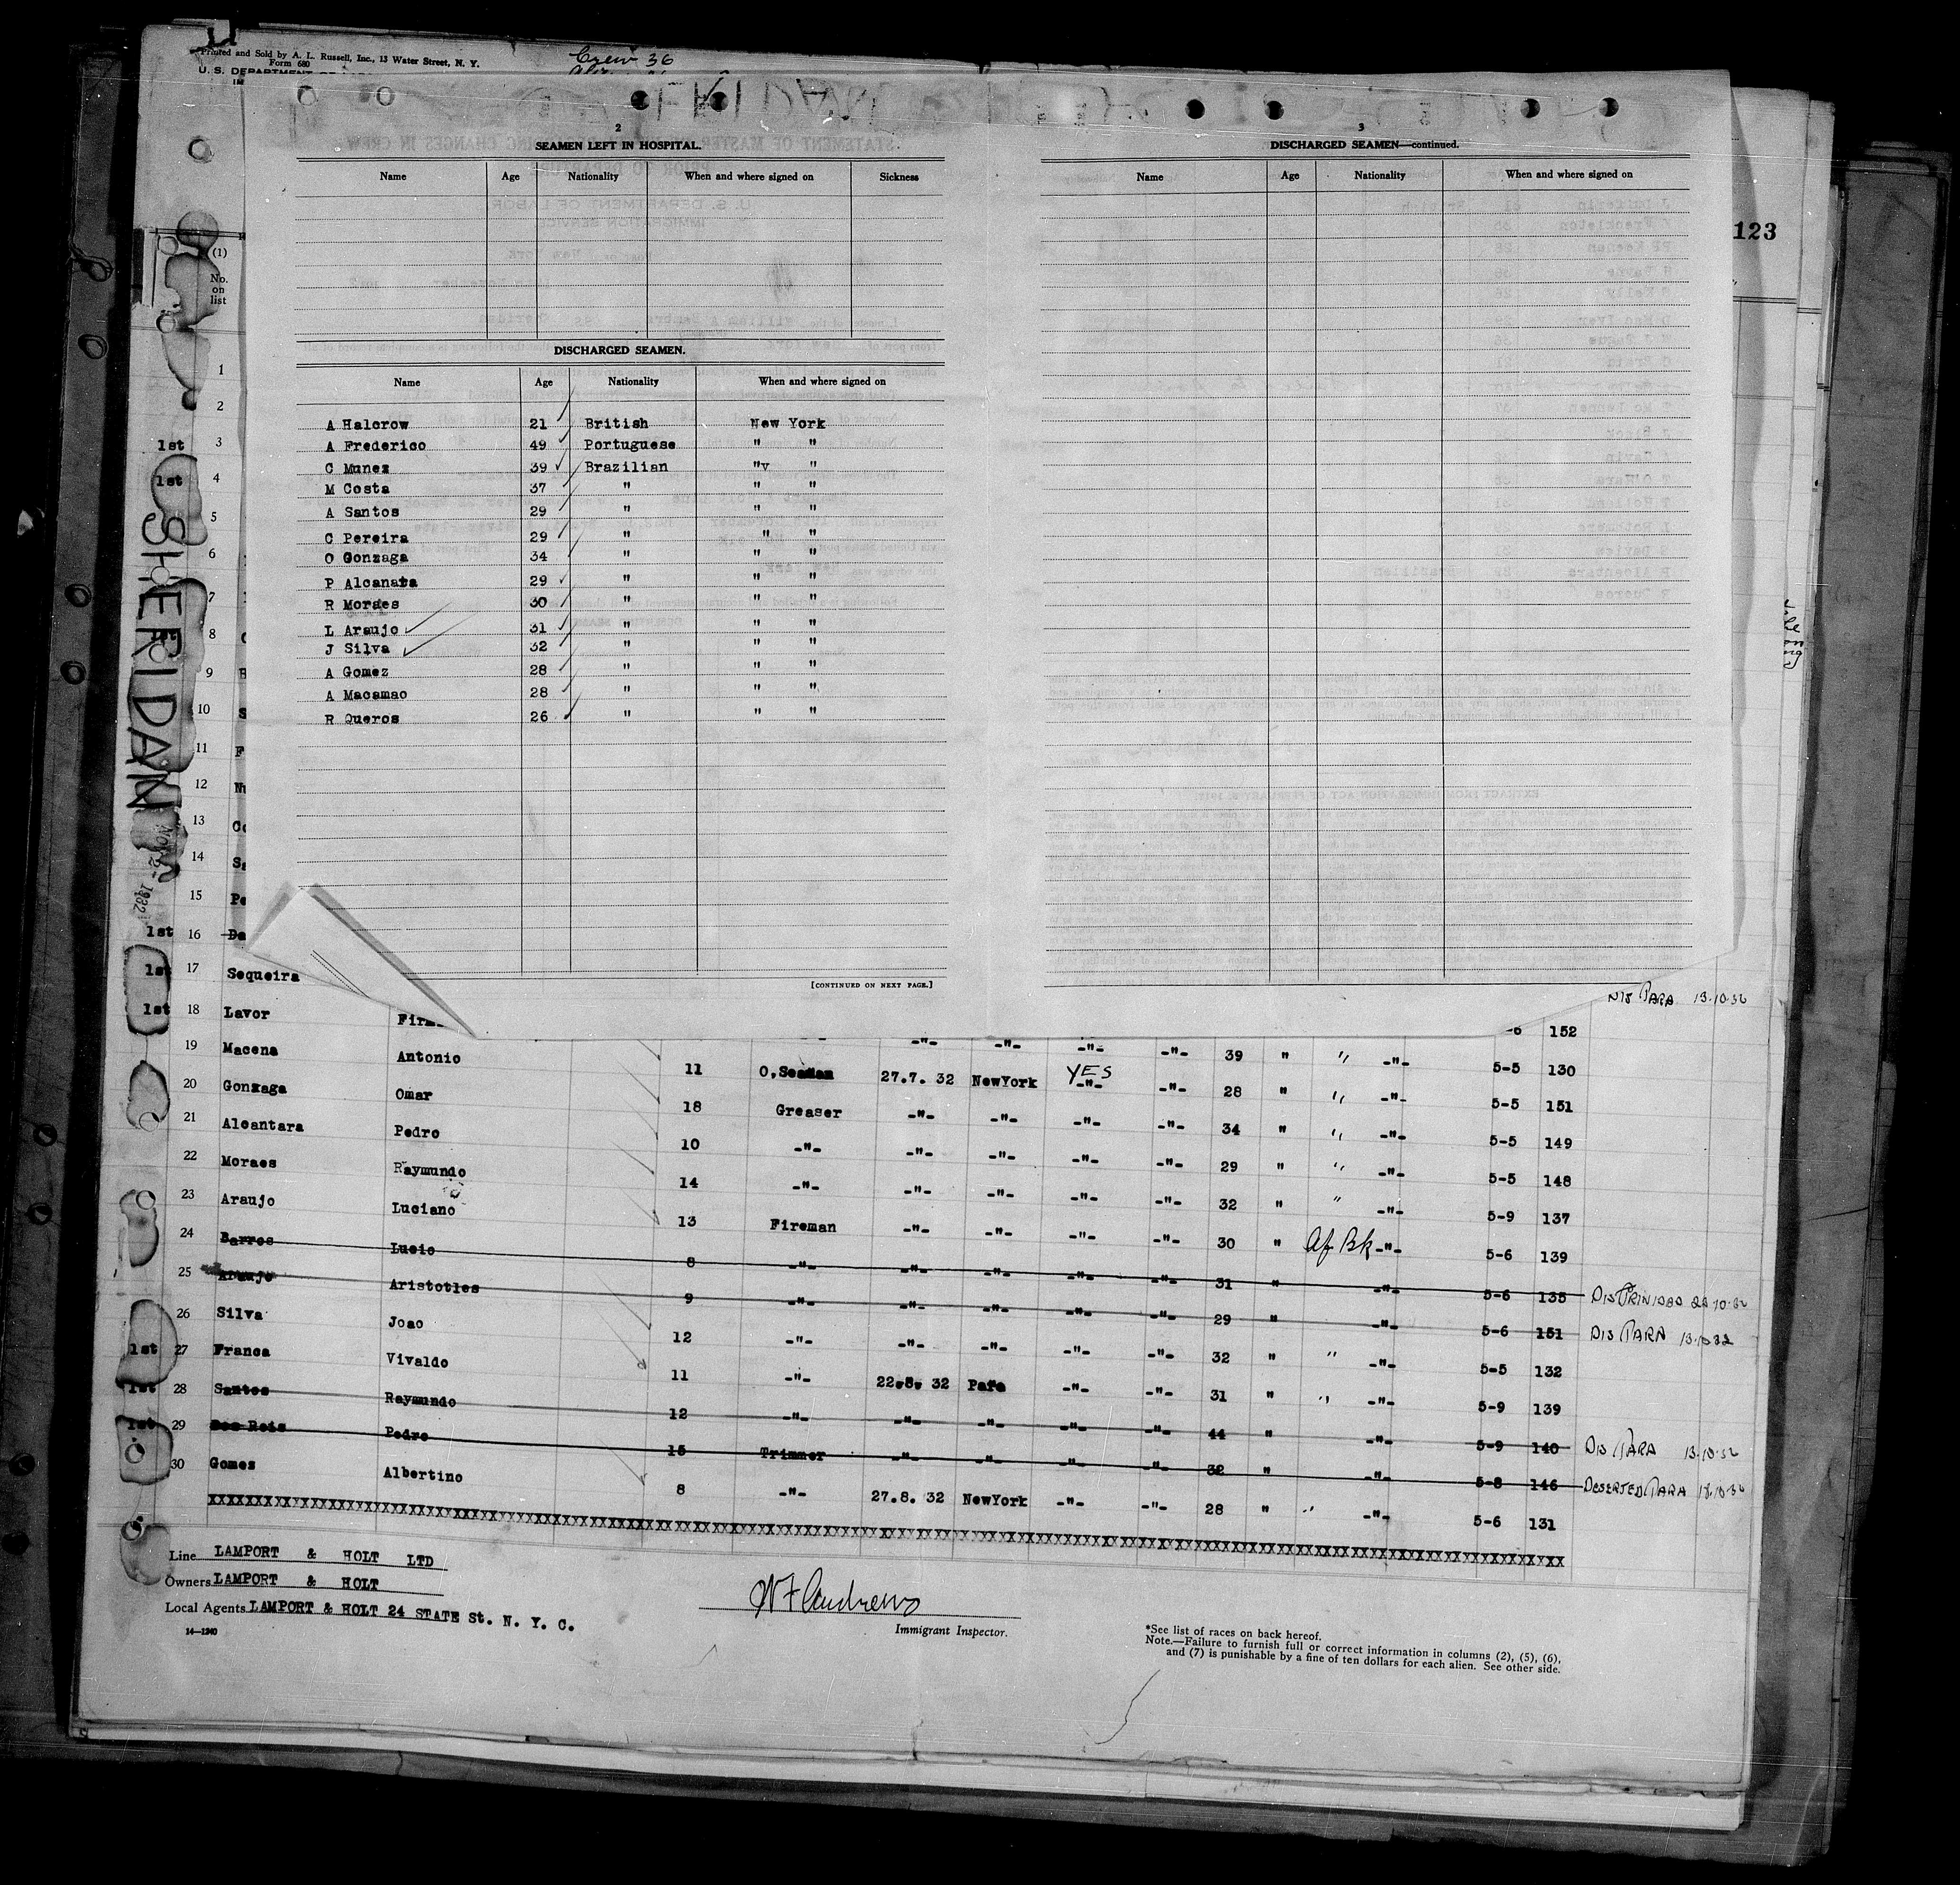 Printed and Sold by A. L. Russell, Inc., 13 Water Street, N. Y.
Form 680
Crew 36
2
SEAMEN LEFT IN HOSPITAL.
Name Age Nationality When and where signed on Sickness
DISCHARGED SEAMEN.
Name Age Nationality When and where signed on
A Halcrow 21 British New York
A Frederico 49 Portuguese " "
C Munez 39 Brazilian " "
M Costa 37 " " "
A Santos 29 " " "
C Pereira 29 " " "
O Gonzaga 34 " " "
P Alcanata 29 " " "
R Moraes 30 " " "
L Araujo 31 " " "
J Silva 32 " " "
A Gomez 28 " " "
A Macamao 28 " " "
R Queros 26 " " "
[CONTINUED ON NEXT PAGE.]
3
DISCHARGED SEAMEN—continued.
Name Age Nationality When and where signed on
123
(1)
No.
on
list
1
2
1st 3
1st 4
5
6
7
1st 8
9
10
11
12
13
14
15
1st 16
SHERIDAN
NOV 2- 1932
1st 17 Sequeira
DIS PARA 13.10.32
1st 18 Lavor 152
19 Macena Antonio 11 O,Seaman 27.7. 32 NewYork YES -"- 39 " " -"- 5-5 130
20 Gonzaga Omar 18 Greaser -"- -"- -"- -"- 28 " " -"- 5-5 151
21 Alcantara Pedro 10 -"- -"- -"- -"- -"- 34 " " -"- 5-5 149
22 Moraes Raymundo 14 -"- -"- -"- -"- -"- 29 " " -"- 5-5 148
23 Araujo Luciano 13 Fireman -"- -"- -"- -"- 32 " " -"- 5-9 137
30 " Af Bk -"- 5-6 139
24 Barros Lucio 8 -"- -"- -"- -"- -"- 31 " -"- 5-6 135 DIS TRINIDAD 22.10.32
25 Araujo Aristotles 9 -"- -"- -"- -"- -"- 29 " -"- 5-6 151 DIS PARA 13.10.32
26 Silva Joao 12 -"- -"- -"- -"- -"- 32 " " -"- 5-5 132
1st 27 Franca Vivaldo 11 -"- 22.8. 32 Para -"- -"- 31 " " -"- 5-9 139
1st 28 Santos Raymundo 12 -"- -"- -"- -"- -"- 44 " -"- 5-9 140 DIS PARA 13.10.32
1st 29 Dos Reis Pedro 15 Trimmer -"- -"- -"- -"- 32 " -"- 5-8 146 DESERTED PARA
30 Gomes Albertino 8 -"- 27.8. 32 NewYork -"- -"- 28 " " -"- 5-6 131
Line LAMPORT & HOLT LTD
Owners LAMPORT & HOLT
Local Agents LAMPORT & HOLT 24 STATE St. N. Y. C.
14—1240
W F Andrews
Immigrant Inspector.
*See list of races on back hereof.
Note.—Failure to furnish full or correct information in columns (2), (5), (6),
and (7) is punishable by a fine of ten dollars for each alien. See other side.